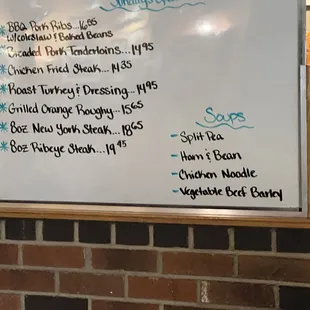 * BBQ Pork Ribs...16.95
w/coleslaw & Baked Beans
* Cicaded Pork Tenderloins...14.95
* Chicken Fried Steak...14.35
* Roast Turkey & Dressing...14.95
* Grilled Orange Roughy...15.65
* 8oz New York Steak...18.65
* 8oz Ribeye Steak...19.45
Soups
- Split Pea
- Ham & Bean
- Chicken Noodle
- Vegetable Beef Barley